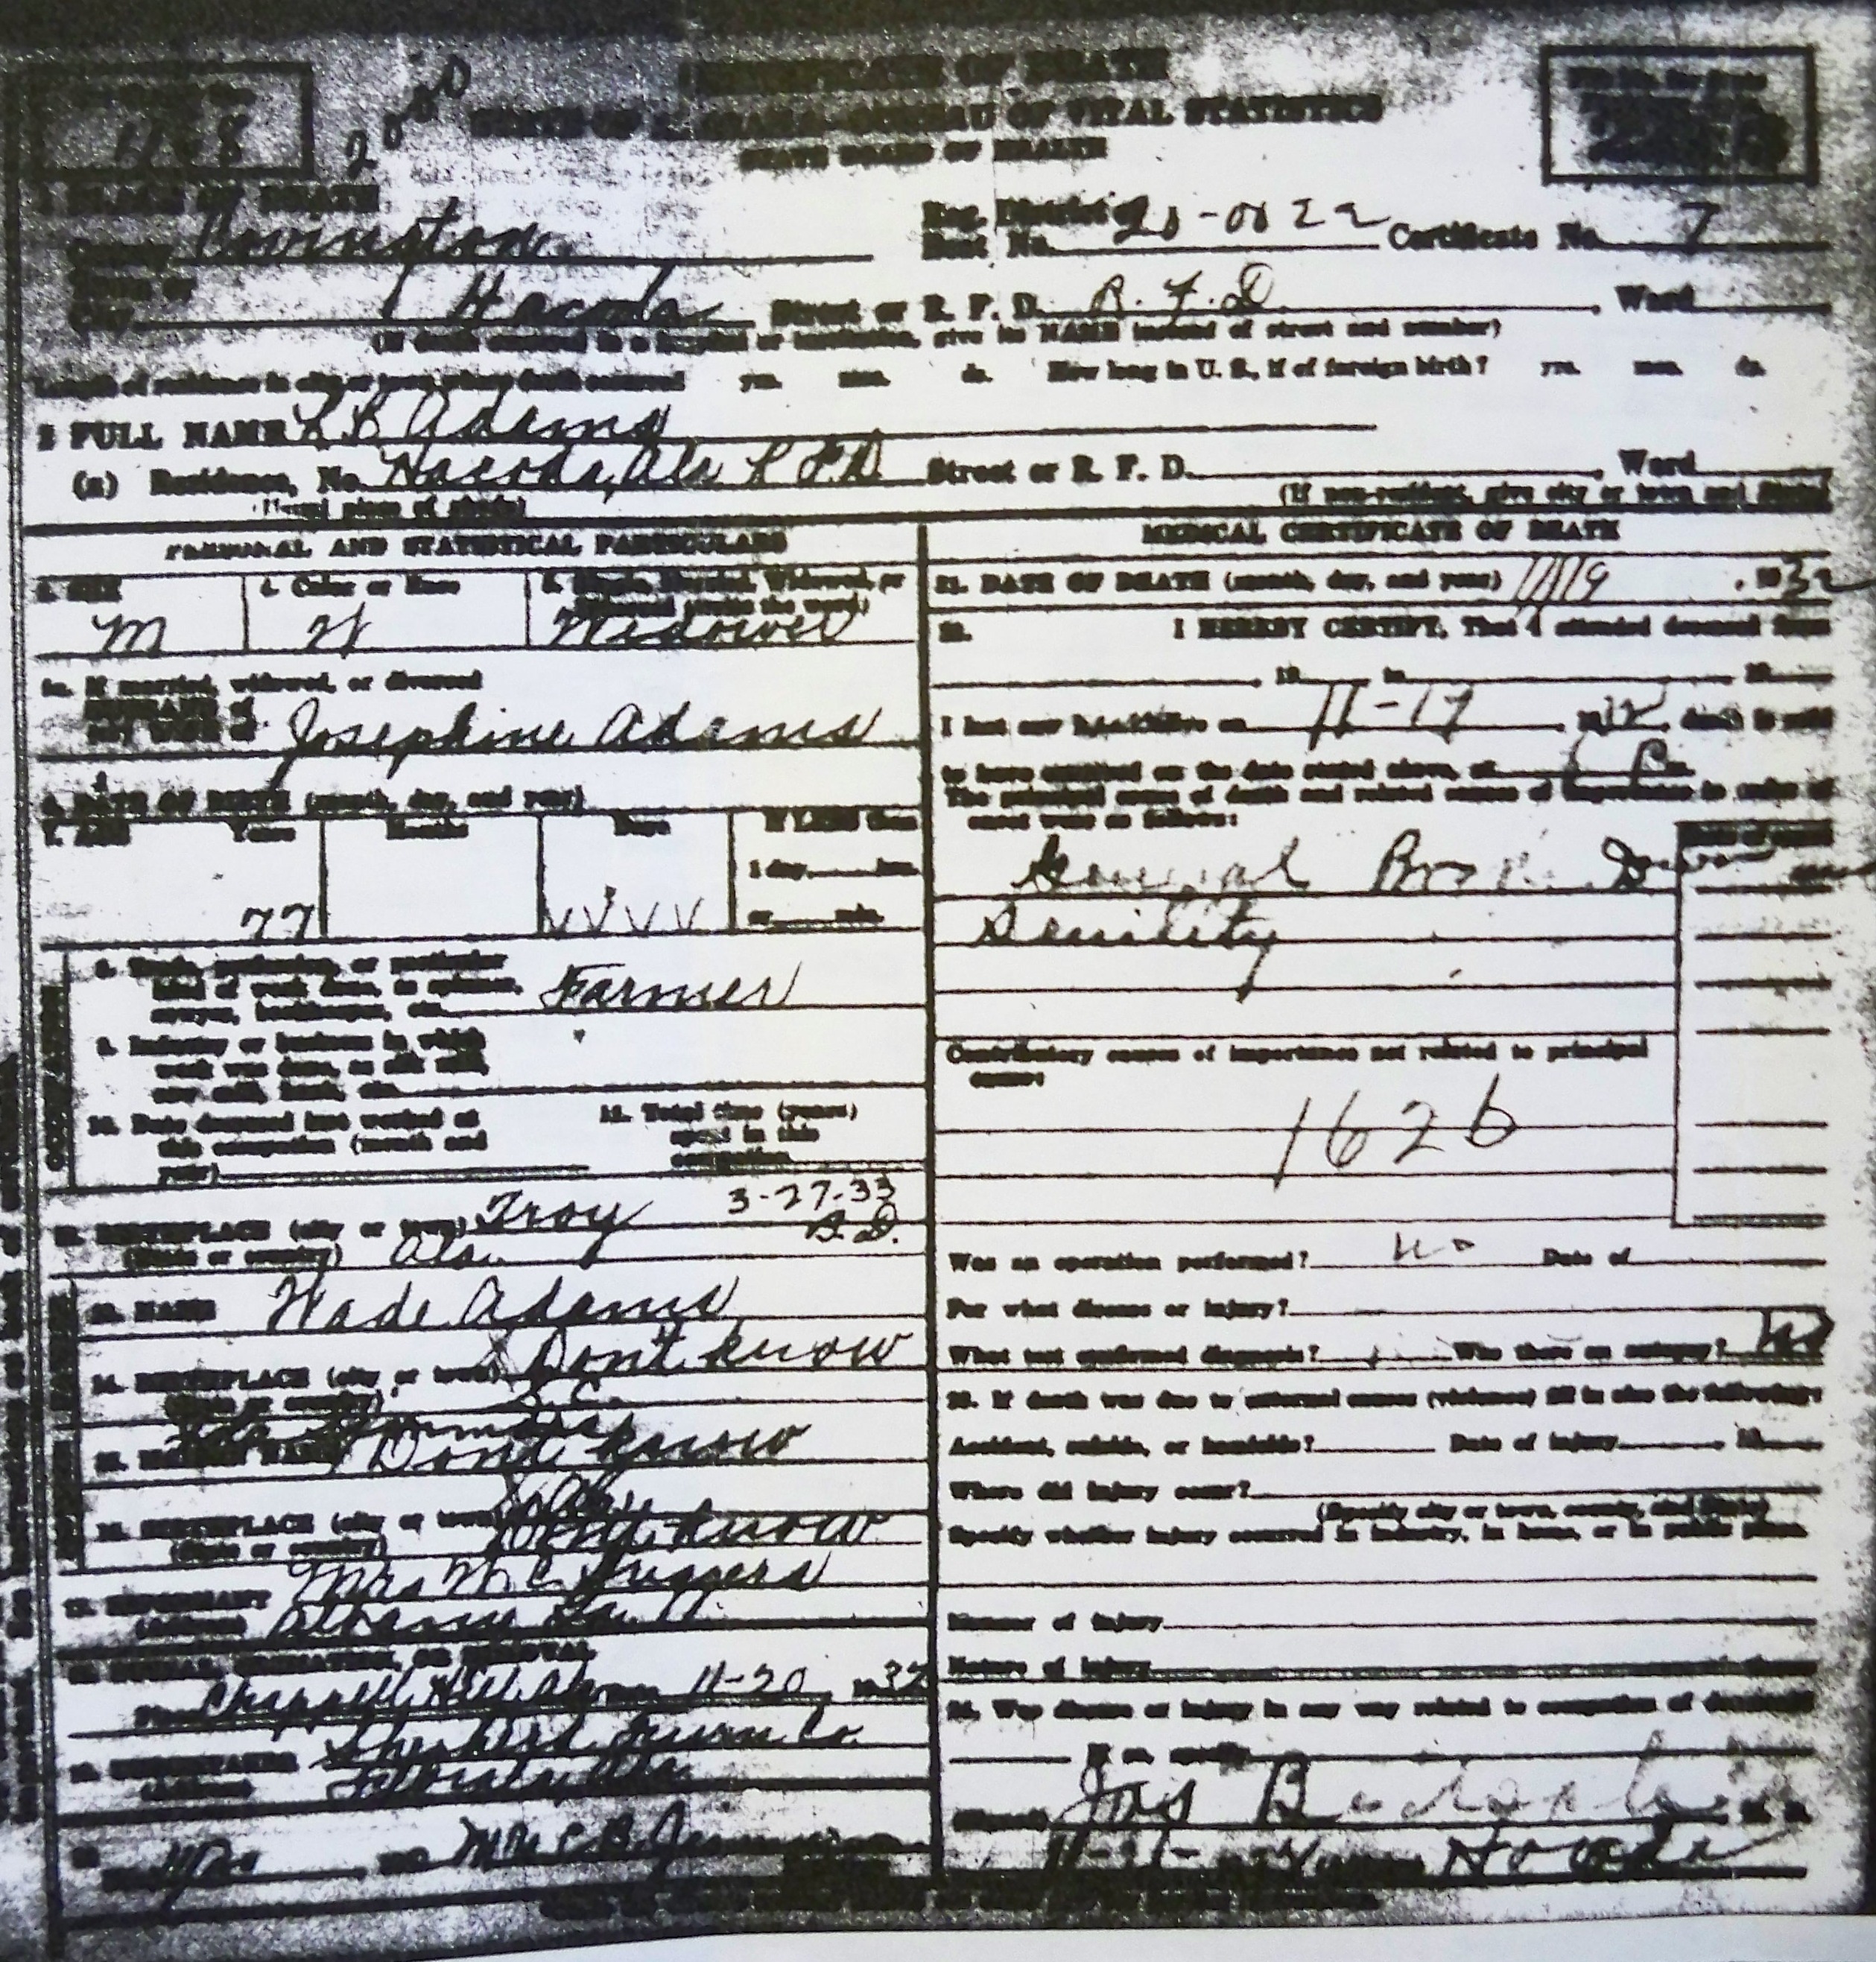 CERTIFICATE OF DEATH
STATE OF ALABAMA—BUREAU OF VITAL STATISTICS
STATE BOARD OF HEALTH
1 PLACE OF DEATH
County Covington Reg. District or Beat No. 20-0022 Certificate No. 7
City Hacoda Street or R. F. D. R.F.D. , Ward
(If death occurred in a hospital or institution, give its NAME instead of street and number)
Length of residence in city or town where death occurred yrs. mos. ds. How long in U. S., if of foreign birth? yrs. mos. ds.
2 FULL NAME Adams
(a) Residence, No. Hacoda, Ala R F.D Street or R. F. D. , Ward
(Usual place of abode) (If non-resident, give city or town and State)
PERSONAL AND STATISTICAL PARTICULARS
3. SEX 4. Color or Race 5. Single, Married, Widowed, or
Divorced (write the word)
M W Widower
5a. If married, widowed, or divorced
HUSBAND of
(or) WIFE of Josephine Adams
6. DATE OF BIRTH (month, day, and year)
7. AGE Years Months Days If LESS than
1 day, hrs.
77 or min.
8. Trade, profession, or particular
kind of work done, as spinner,
sawyer, bookkeeper, etc. Farmer
9. Industry or business in which
work was done, as silk mill,
saw mill, bank, etc.
10. Date deceased last worked at
this occupation (month and
year)
11. Total time (years)
spent in this
occupation
3-27-33
12. BIRTHPLACE (city or town) Troy
(State or country) Ala.
13. NAME Wade Adams
14. BIRTHPLACE (city or town) Dont know
(State or country) S.C.
15. MAIDEN NAME Dont know
16. BIRTHPLACE (city or town) Dont know
(State or country)
17. INFORMANT Mrs
(Address)
18. BURIAL, CREMATION, OR REMOVAL
Place Chappell Hill, Ala 11-20 , 1932
19. UNDERTAKER
(Address) Florala, Ala
MEDICAL CERTIFICATE OF DEATH
21. DATE OF DEATH (month, day, and year) 11/19 , 1932
22. I HEREBY CERTIFY, That I attended deceased from
, 19 to , 19
I last saw h alive on 11-17 , 1932 death is said
to have occurred on the date stated above, at P m.
The principal cause of death and related causes of importance in order of
onset were as follows:
Date of onset
General
Senility
Contributory causes of importance not related to principal
cause:
162 b
Was an operation performed? no Date of
For what disease or injury?
What test confirmed diagnosis? Was there an autopsy? No
23. If death was due to external causes (violence) fill in also the following:
Accident, suicide, or homicide? Date of injury , 19
Where did injury occur?
(Specify city or town, county, and State)
Specify whether injury occurred in industry, in home, or in public place.
Manner of injury
Nature of injury
24. Was disease or injury in any way related to occupation of deceased?
If so, specify
(Signed) M. D.